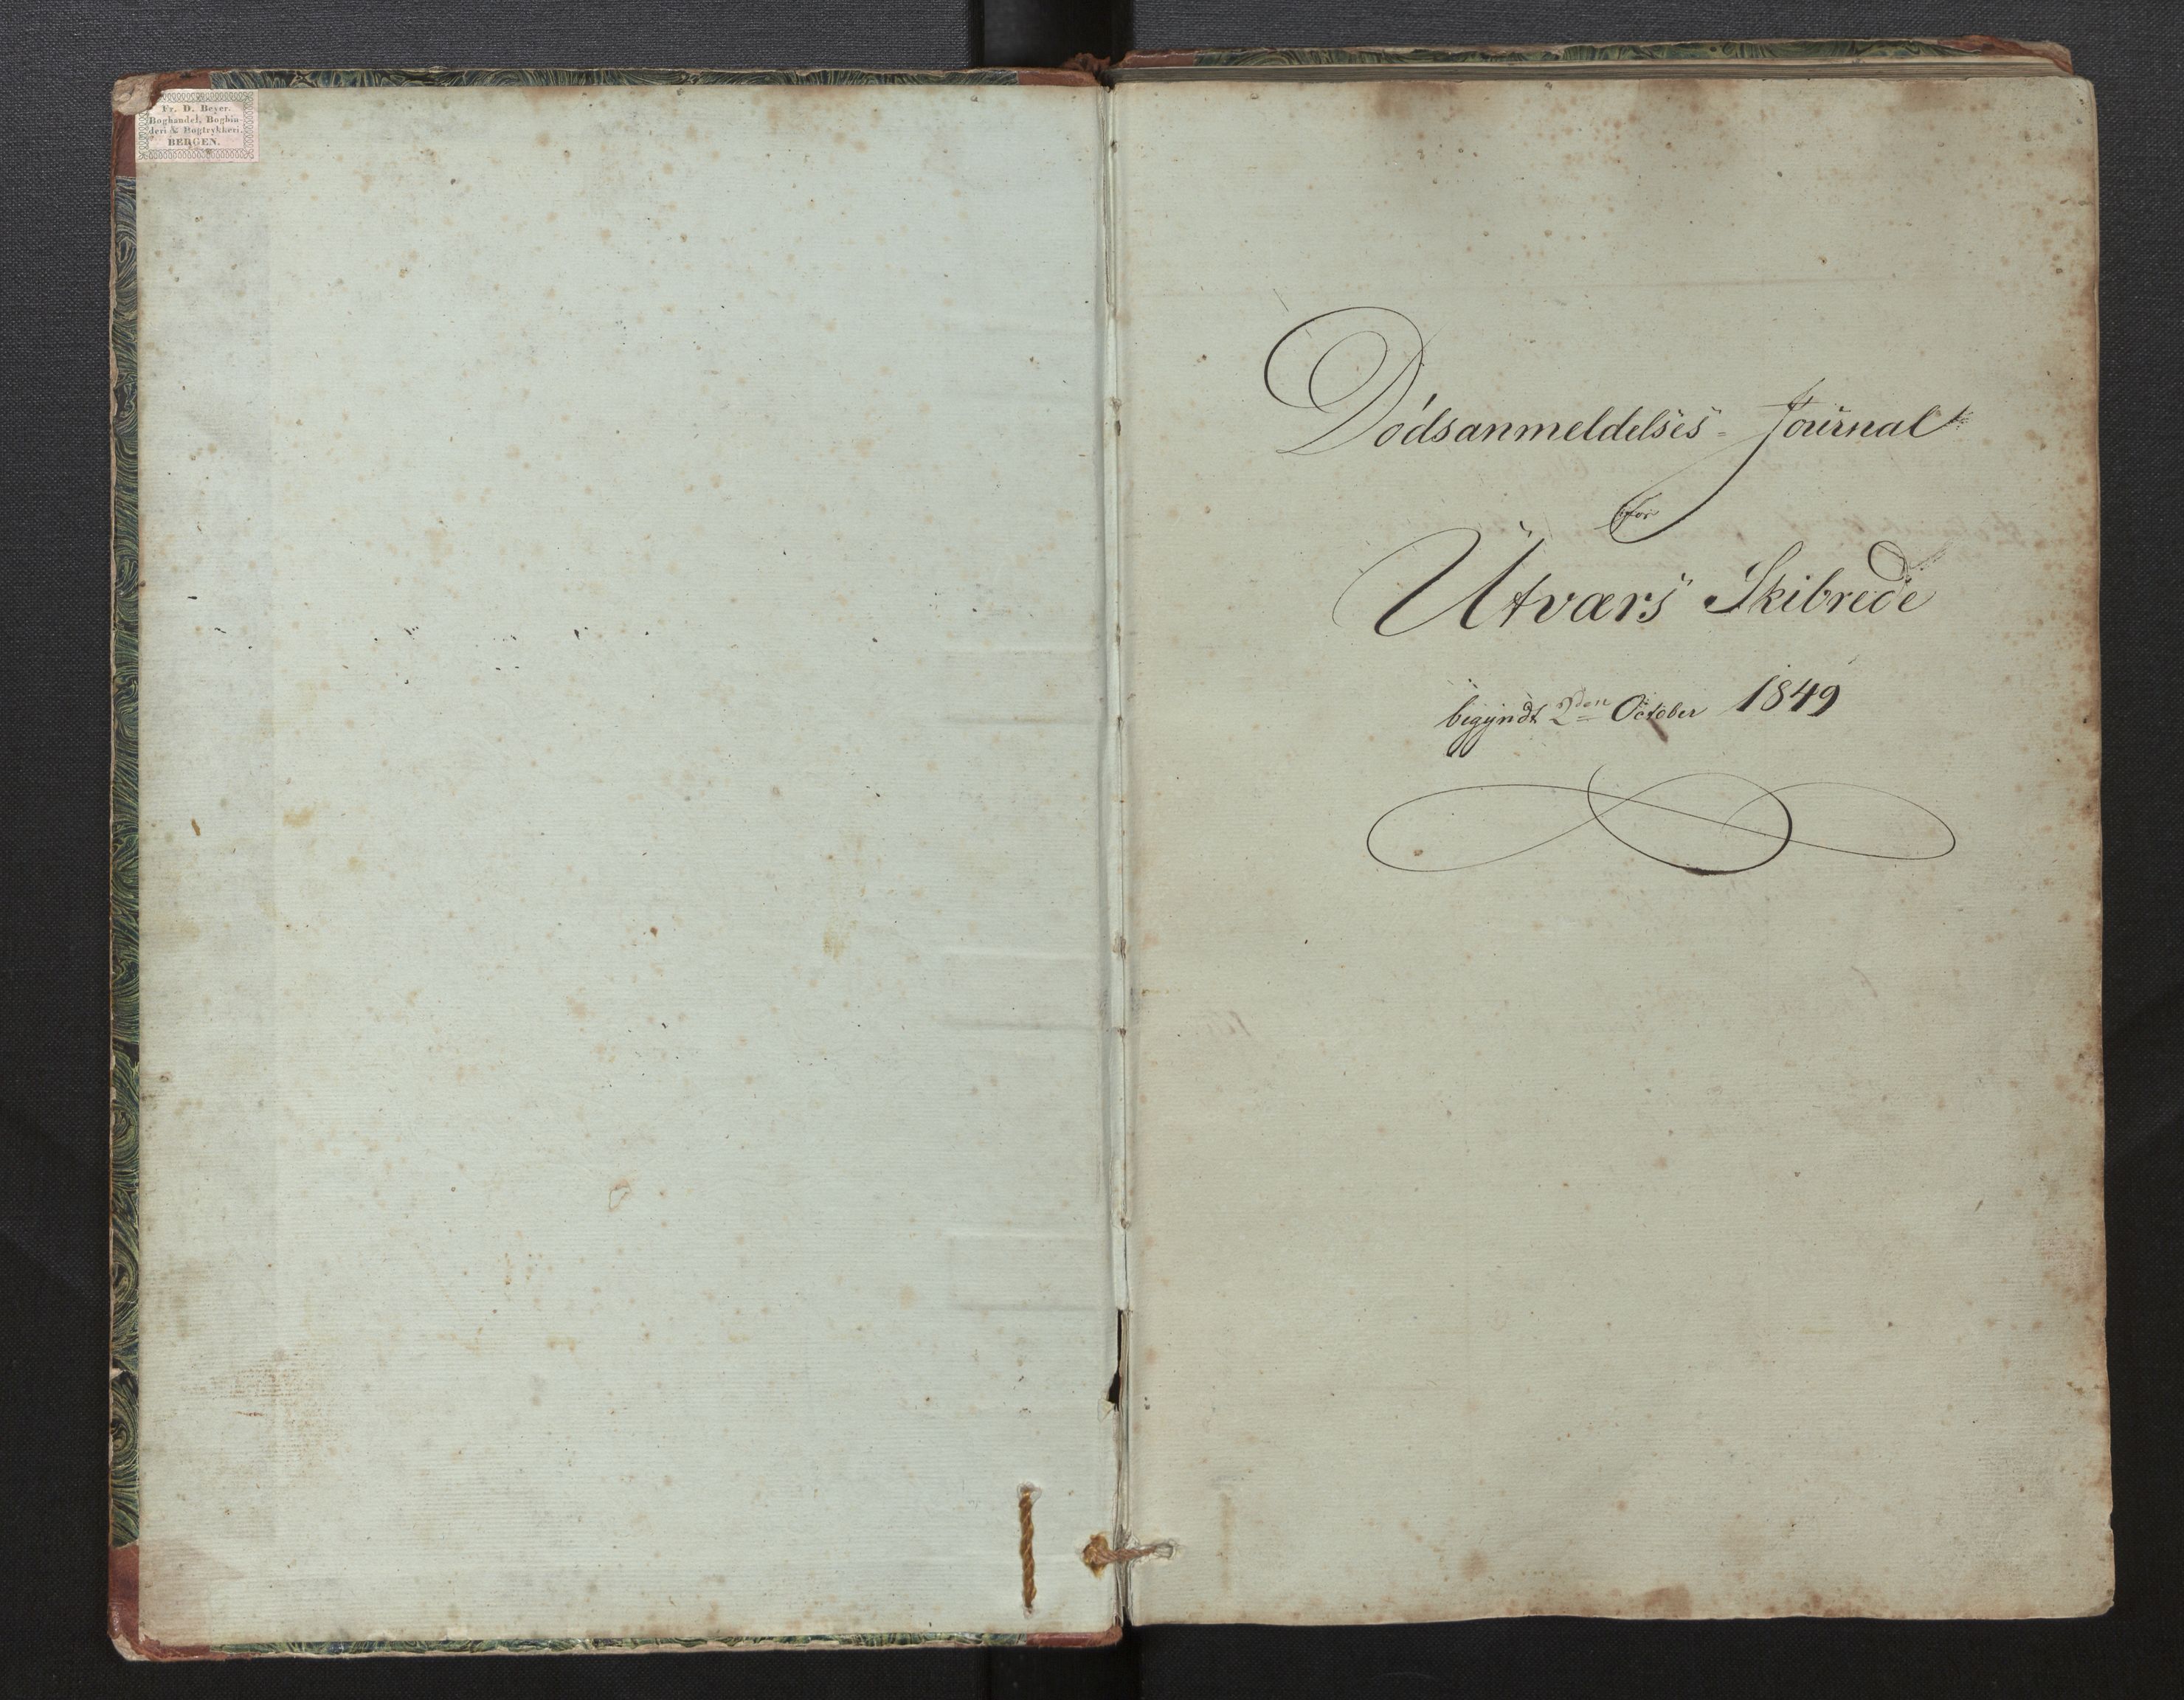 Fr. D. Beyer.
Boghandel, Bogbin-
deri & Bogtrykkeri.
BERGEN.
Dödsanmeldelses- Journal
for
Utværs Skibrede
begyndt 2den October 1849